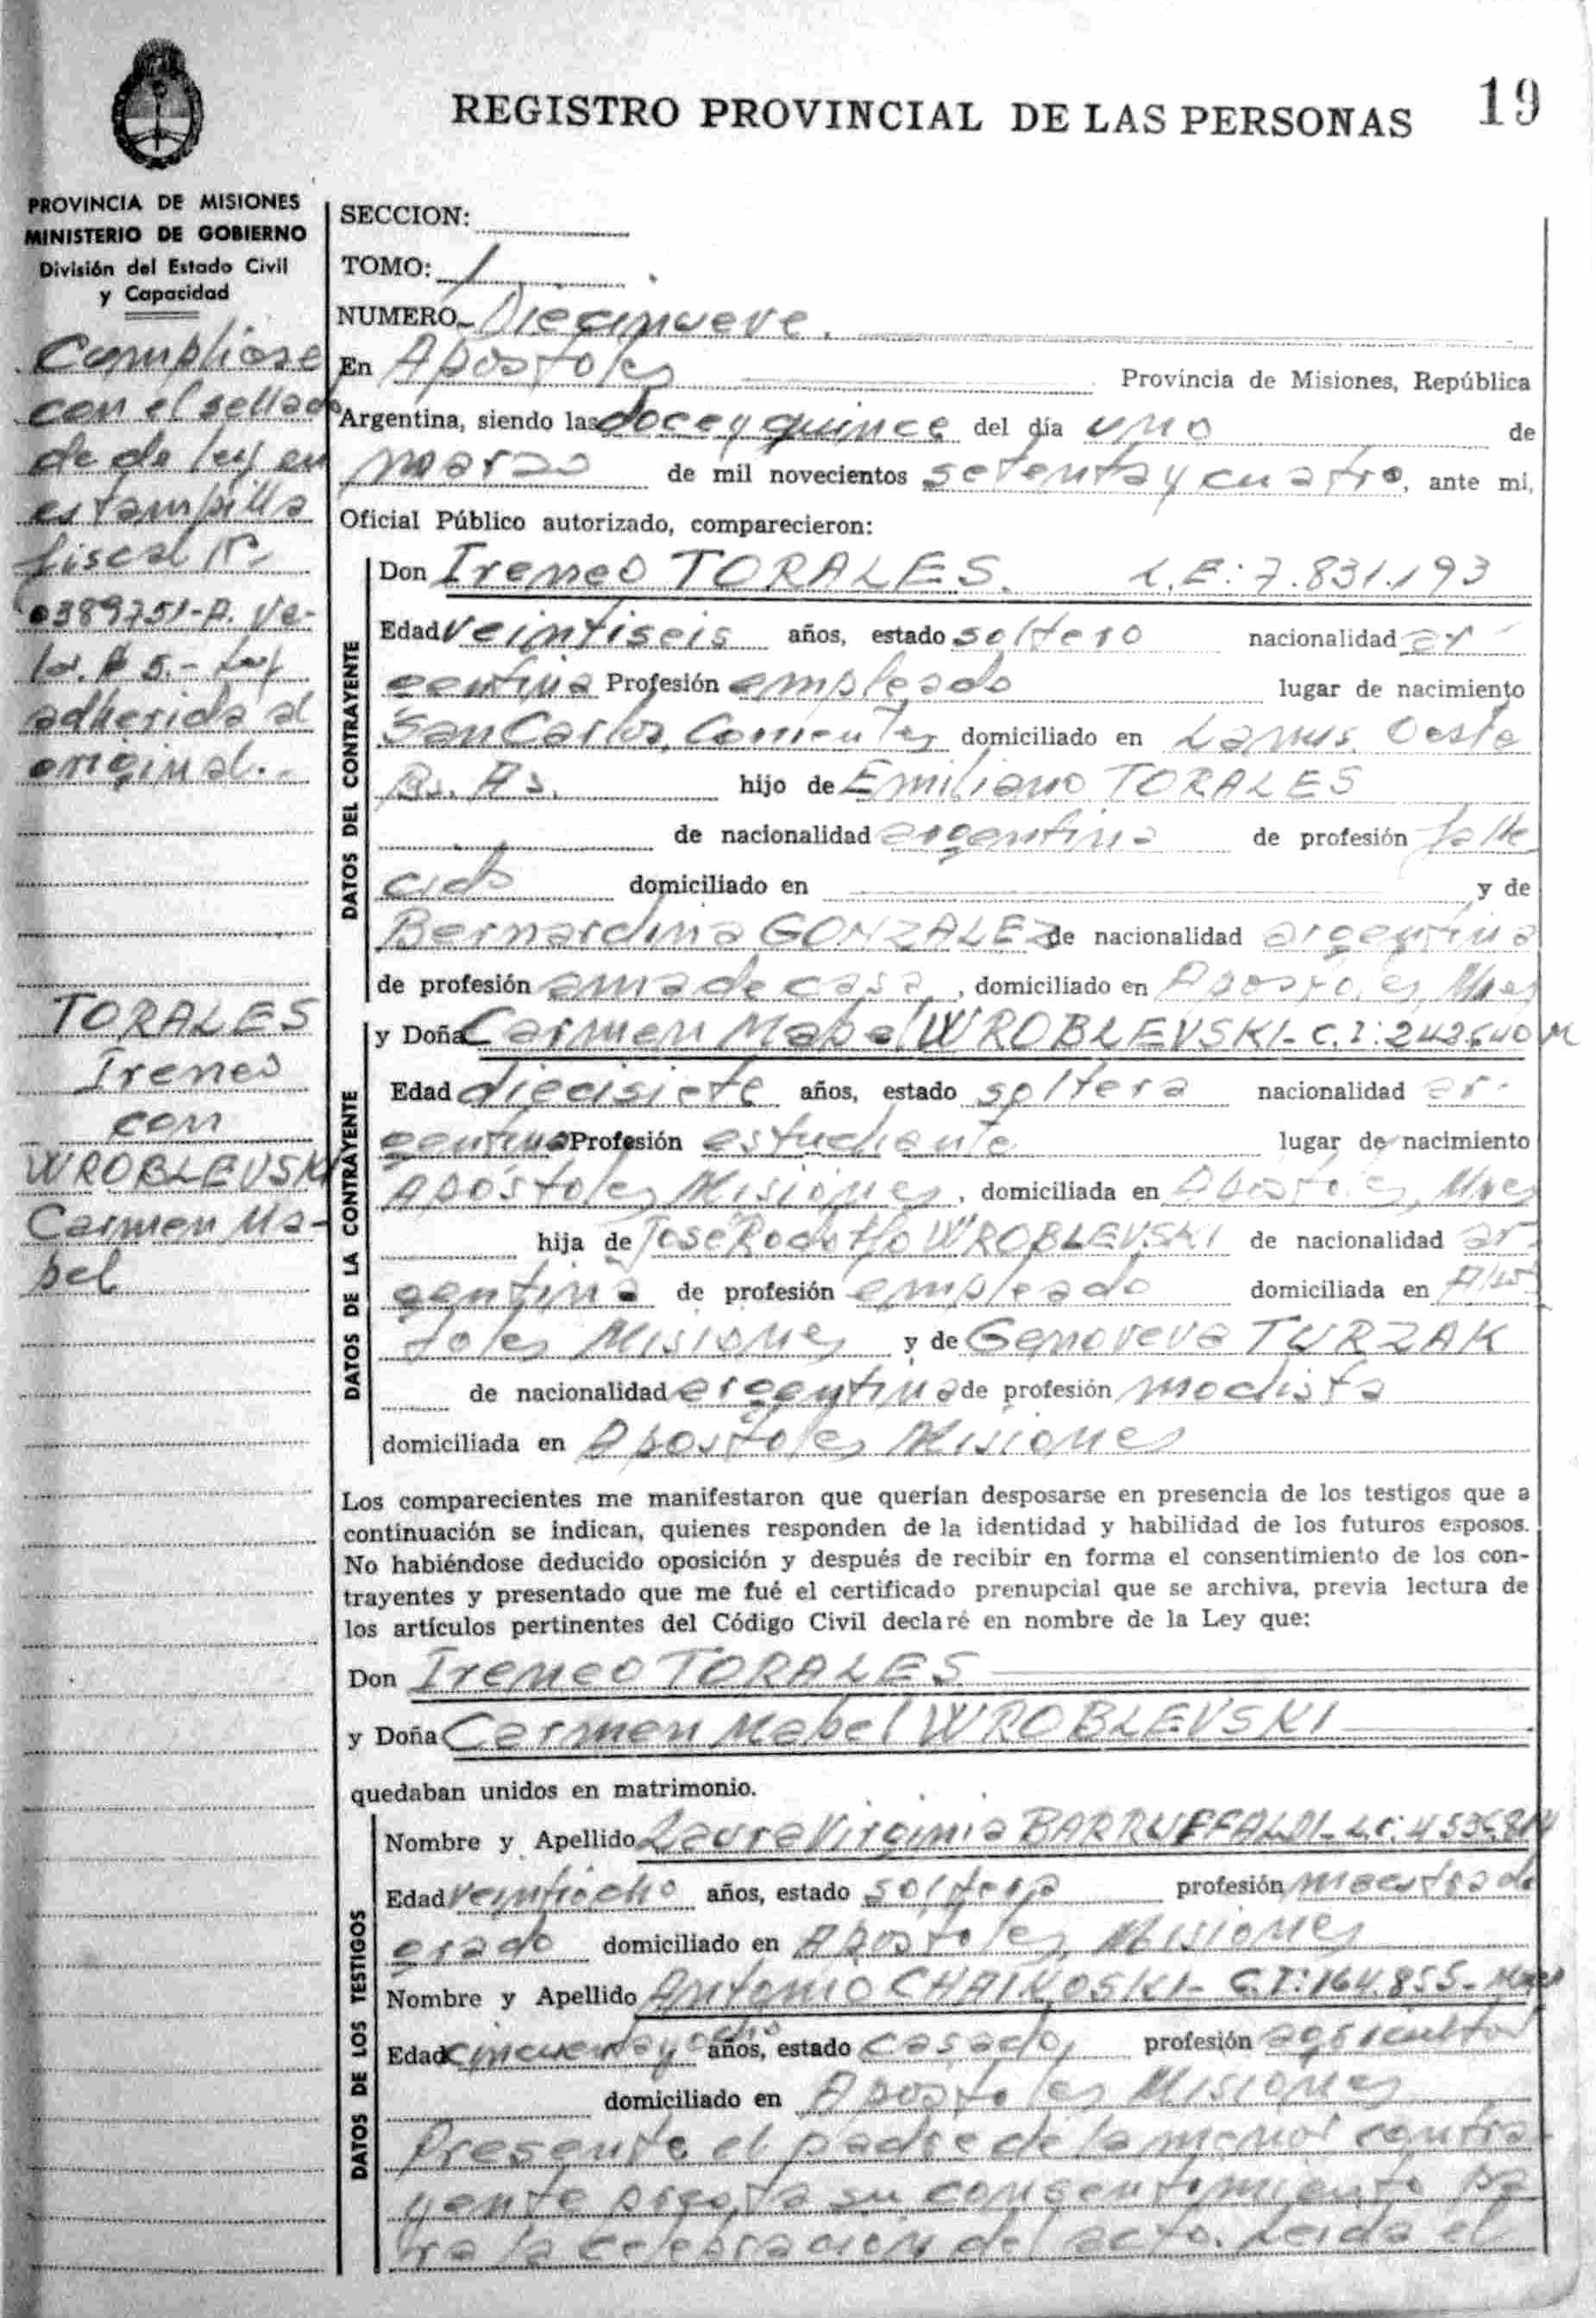 REGISTRO PROVINCIAL DE LAS PERSONAS 19
PROVINCIA DE MISIONES
MINISTERIO DE GOBIERNO
División del Estado Civil
y Capacidad
Compliose
con el sellado
de de ley en
estampilla
fiscal Nº
0389751-A. Va-
lor $ 5.- Ley
adherida al
original.-
TORALES
Ireneo
con
WROBLEVSKI
Carmen Ma-
bel
SECCION:
TOMO: 1
NUMERO Diecinueve.
En Apóstoles Provincia de Misiones, República
Argentina, siendo las doce y quince del día uno de
marzo de mil novecientos setenta y cuatro, ante mi,
Oficial Público autorizado, comparecieron:
DATOS DEL CONTRAYENTE
Don Ireneo TORALES. L.E: 7.831.193
Edad veintiseis años, estado soltero nacionalidad ar-
gentina Profesión empleado lugar de nacimiento
San Carlos, Corrientes domiciliado en Lanus Oeste
Bs. As. hijo de Emiliano TORALES
de nacionalidad argentina de profesión falle
cido domiciliado en y de
Bernardina GONZALEZ de nacionalidad argentina
de profesión ama de casa, domiciliado en Apóstoles, Mnes
DATOS DE LA CONTRAYENTE
y Doña Carmen Mabel WROBLEVSKI- C.I: 243.640 M
Edad diecisiete años, estado soltera nacionalidad ar-
gentina Profesión estudiante lugar de nacimiento
Apóstoles Misiones, domiciliada en Apóstoles, Mnes
hija de José Rodolfo WROBLEVSKI de nacionalidad ar-
gentina de profesión empleado domiciliada en Após
toles Misiones y de Genoveva TURZAK
de nacionalidad argentina de profesión modista
domiciliada en Apostoles Misiones
Los comparecientes me manifestaron que querían desposarse en presencia de los testigos que a
continuación se indican, quienes responden de la identidad y habilidad de los futuros esposos.
No habiéndose deducido oposición y después de recibir en forma el consentimiento de los con-
trayentes y presentado que me fué el certificado prenupcial que se archiva, previa lectura de
los artículos pertinentes del Código Civil declaré en nombre de la Ley que:
Don Ireneo TORALES
y Doña Carmen Mabel WROBLEVSKI
quedaban unidos en matrimonio.
DATOS DE LOS TESTIGOS
Nombre y Apellido Laura Virginia BARRUFFALDI- L.C:
Edad veintiocho años, estado soltera profesión maestra de
grado domiciliado en Apostoles, Misiones
Nombre y Apellido Antonio CHAIKOSKI- C.I: 164.855- Mnes
Edad cincuenta y ocho años, estado casado, profesión agricultor
domiciliado en Apostoles Misiones
Presente el padre de la menor contra-
yente presta su consentimiento pa
ra la celebración del acto. Leida el